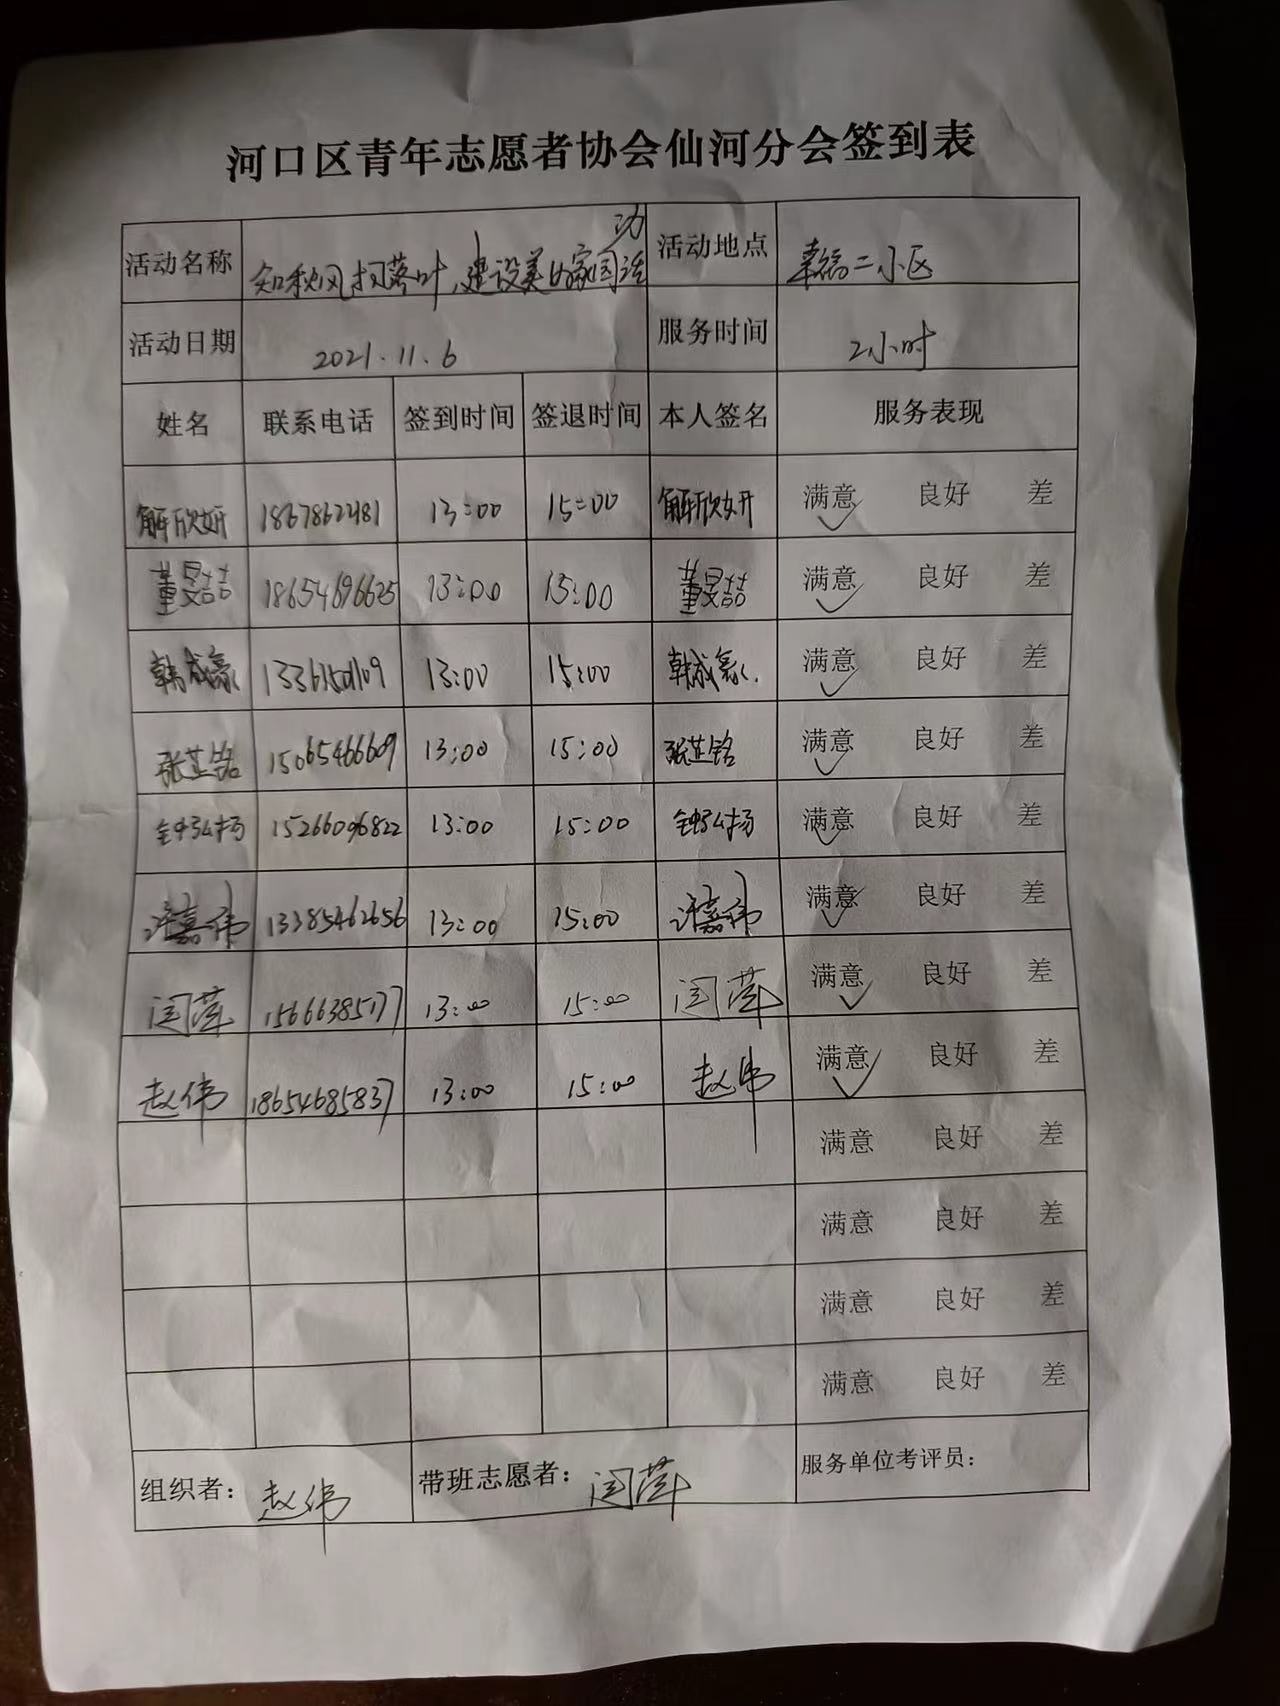 河口区青年志愿者协会仙河分会签到表
活动名称 知秋风扫落叶,建设美好家园活动 活动地点 幸福二小区
活动日期 2021.11.6 服务时间 2小时
姓名 联系电话 签到时间 签退时间 本人签名 服务表现
解欣妍 1867862481 13:00 15:00 解欣妍 满意 良好 差
董旻喆 18654696625 13:00 15:00 董旻喆 满意 良好 差
韩成豪 13:00 15:00 韩成豪 满意 良好 差
张芷铭 15065466609 13:00 15:00 张芷铭 满意 良好 差
钟弘扬 15266096822 13:00 15:00 钟弘扬 满意 良好 差
许嘉伟 13385462656 13:00 15:00 许嘉伟 满意 良好 差
闫萍 15666385177 13:00 15:00 闫萍 满意 良好 差
赵伟 18654685837 13:00 15:00 赵伟 满意 良好 差
满意 良好 差
满意 良好 差
满意 良好 差
满意 良好 差
组织者: 赵伟 带班志愿者: 闫萍 服务单位考评员: